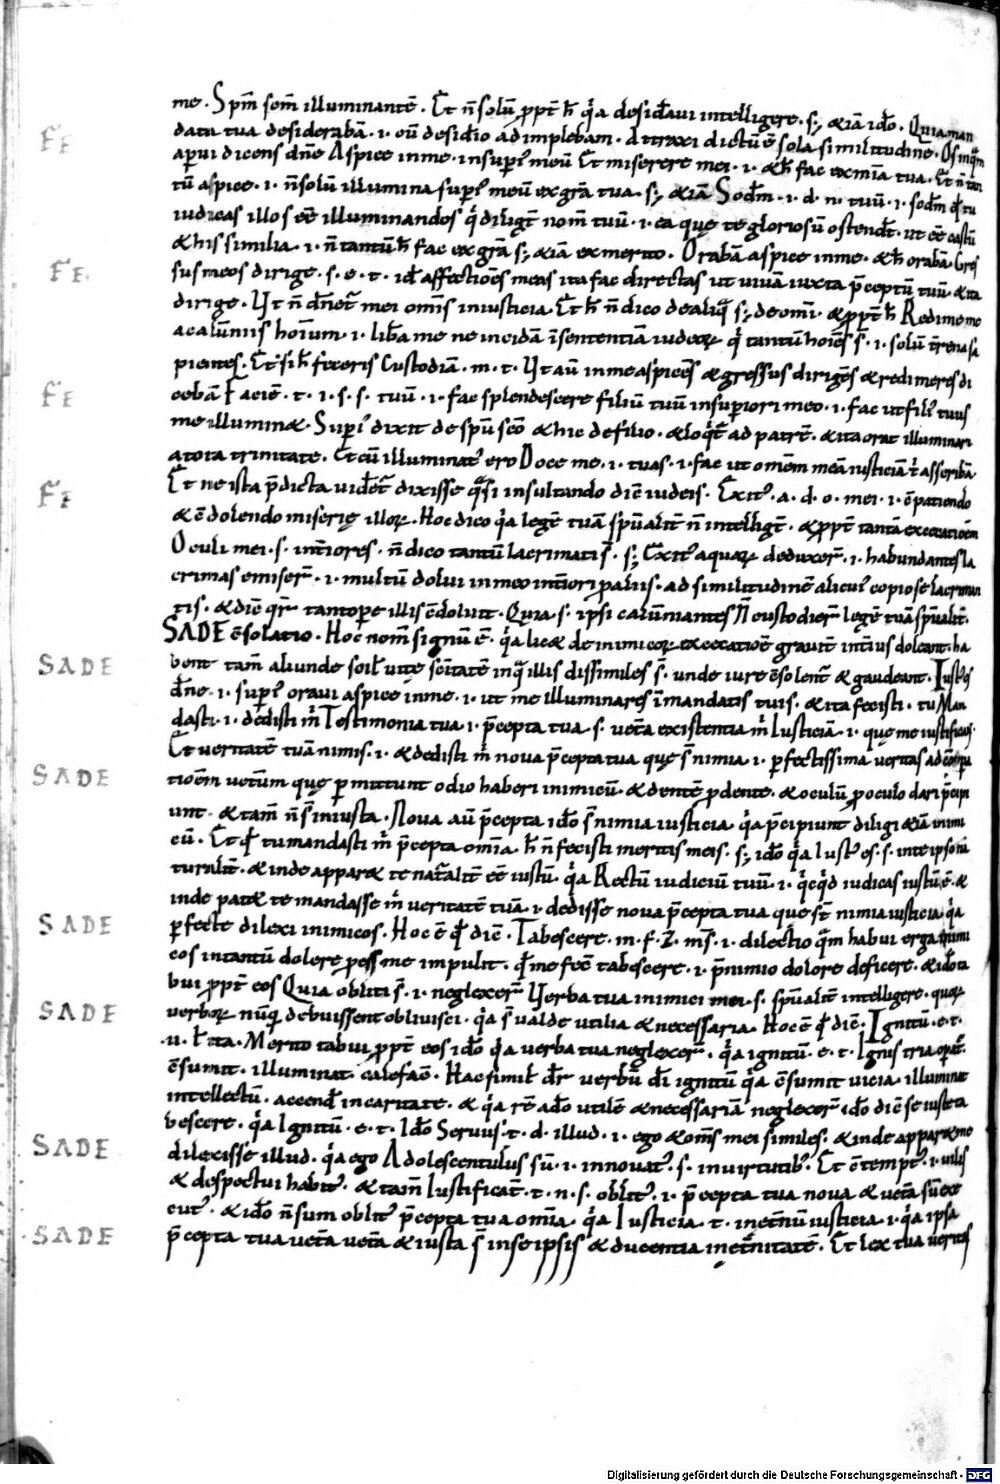 me. Spm̄ scm̄ illuminantē. Et n̄ solū ꝓpt̄ h̄ q̇a desid̄avi intelligere. s; & iā ido. Quia man
FE
data tua desiderabā. i. cū desidīo adimplebam. Attraxi dictū ē sola similitudine. Os in
aperui dicens dn̄e Aspice in me. in superī meū Et miserere mei. i. & h̄ fac ex mīa tua. Et n̄
tū aspice. i. n̄ solū illumina superī meū ex grā tua. s; & iā Scd̄m. i. d. n. tuū. i. scd̄m qd̄ tu
iudicas illos eē illuminandos q̇ diligt̄ nom̄ tuū. i. ea quę te gloriosū ostendt̄. ut eē castū
& his similia. i. n̄ tantū h̄ fac ex grā s; & iā ex merito. Orabā aspice in me. & h̄ orabā. Gres
FE.
sus meos dirige. s. e. t. id̄ affectiōes meas ita fac directas ut vivā iuxta p̄ceptū tuū. & ita
dirige. Ut n̄ dn̄et̄ mei omīs iniusticia. Et h̄ n̄ dico de aliq̄ s; de omī. & ꝓpt̄ h̄ Redime me
a calūniis hoīum. i. lib̄a me ne incidā ī sententiā iudeoꝝ q̇ tantū hoīes s̄. i. solū t̄rena sa
pientes. Et si h̄ feceris Custodiā. m. t. Ut aū in me aspicēs & gressus dirigēs & redimeres di
FE
cebā Faciē. t. i. s. s. tuū. i. fac splendescere filiū tuū in superiori meo. i. fac ut filī tuus
me illumin&. Superī dixit de spū scō & hic de filio. & loq̄t̄ ad patrē. & ita orat illuminari
a tota trinitate. Et cū illuminatꝰ ero Doce me. i. tuas. i. fac ut omēm meā iusticiā
FE
Et ne ista p̄dicta vid̄et̄ dixisse q̄si insultando diē iudeis. Exitꝰ. a. d. o. mei. i. ē patiendo
& ē dolendo miserię illoꝝ. Hoc dico q̇a legē tuā spūalit̄ n̄ intelligt̄. & ꝓpt̄ tantā excecatiōēm
Oculi mei. s. int̄iores. n̄ dico tantū lacrimati s̄. s; Exitꝰ aquaꝝ deduxer̄. i. habundantes la
crimas emiser̄. i. multū dolui in meo int̄iori ꝓ aliis. ad similitudinē alicuiꝰ copiose lacriman
tis. & diē qr̄ tantope illis ē doluit. Quia. s. ipsi calūmiantes N̄ custodier̄ legē tuā spūalit̄.
SADE ēsolatio. Hoc nom̄ signū ē. q̇a lic& de inimicoꝝ excecatiōē gravit̄ int̄ius doleant. ha
SADE
bent tam̄ aliunde soil̄ vite scītatē in q̄ illis dissimiles s̄. unde iure ēsolent̄ & gaudeant. Iustꝰ es
dn̄e. i. superī oravi aspice in me. i. ut me illuminares ī mandatis tuis. & ita fecisti. tu Man
dasti. i. dedisti m̄ Testimonia tua. i. p̄cepta tua. s. vet̄a existentia m̄ Iusticiā. i. quę me iustificas.
Et veritatē tuā nimis. i. & dedisti m̄ nova p̄cepta tua quę s̄ nimia. i. ꝑfectissima veritas ad
SADE
tiōēm vet̄um quę ꝑmittunt odio haberi inimicū. & dentē ꝓ dente. & oculū ꝓ oculo dari p̄cipi
unt. & tam̄ n̄ s̄ iniusta. Nova aū p̄cepta ido s̄ nimia iusticia. q̇a p̄cipiunt diligi & iā inimi
cū. Et qd̄ tu mandasti m̄ p̄cepta omīa. h̄ n̄ fecisti meritis meis. s; ido q̇a Iustꝰ es. s. in te ipso
turalit̄. & inde appar& te nat̄alit̄ eē iustū. q̇a Rectū iudiciū tuū. i. q̇cq̇d iudicas iustū ē. &
inde pat& te mandasse m̄ veritatē tuā. i. dedisse nova p̄cepta tua que st̄ nimia iusticia. q̇a
SADE
ꝑfecte dilexi inimicos. Hoc ē qd̄ diē. Tabescere. m. f. Z. m̄s. i. dilectio q̄m habui erga inimi
cos in tantū dolere ꝓ esse me impulit. qd̄ me fec̄ tabescere. i. p̄ nimio dolore deficere. & ido ta
bui ꝓpt̄ eos Quia obliti s̄. i. neglexer̄ Verba tua inimici mei. s. spūalit̄ intelligere. quoꝝ
SADE
verboꝝ nūq̇ debuissent oblivisci. q̇a s̄ valde utilia & necessaria. Hoc ē qd̄ diē. Ignitū. e. t.
u. F ita. Merito tabui ꝓpt̄ eos ido q̇a verba tua neglexer̄. q̇a ignitū. e. t. Ignis tria opat̄.
ēsumit. illuminat. calefacē. Hac simil̄ dr̄ verbū dī ignitū q̇a ēsumit vicia. illuminat
intellectū. accendit in caritate. & q̇a rē ado utilē & necessariā neglexer̄ ido diē se iuste ta
bescere. q̇a Ignitū. e. t. Ido Servus. t. d. illud. i. ego & om̄s mei similes. & inde appar& me
SADE
dilexisse illud. q̇a ego Adolescentulus sū. i. innovatꝰ. s. in virtutibꝰ. Et ētemptꝰ. i. vilis
& despectui habitꝰ. & tam̄ Iustificat̄. t. n. s. oblitꝰ. i. p̄cepta tua nova & vet̄a
cutꝰ. & ido n̄ sum oblitꝰ p̄cepta tua omīa. q̇a Iusticia. t. in et̄nū iusticia. i. q̇a ipsa
SADE
p̄cepta tua vet̄a vet̄a & iusta s̄ in se ipsis & ducentia in et̄nitatē. Et lex tua veritas
Digitalisierung gefördert durch die Deutsche Forschungsgemeinschaft - DFG